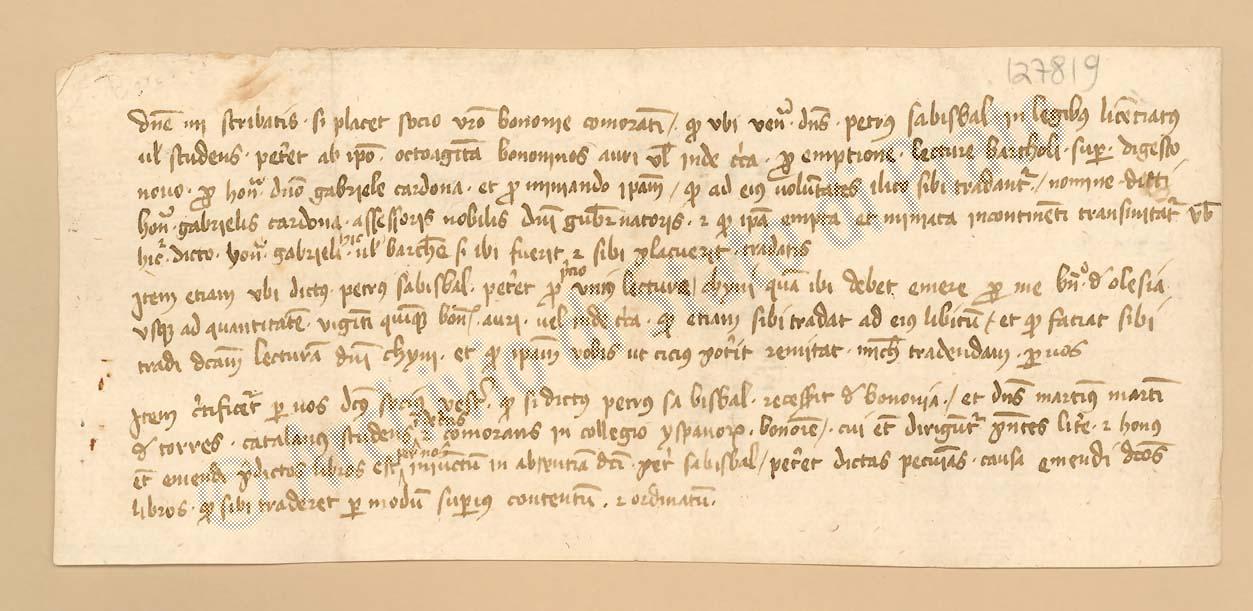 127819
dne mi scribatis · si placet socio vro bononie comorati / qͻ ubi ven · dns · petrus sabisbal in legibus licentiatus
ul studens · peteret ab ipo · octoaginta bononinos auri vl inde cͬca · pro emptione · lecture bartholi · sup · digesto
novo · pro hon · dno gabriele cardona · et pro miniando ipam / qͻ ad eius voluntates ilico sibi tradant / nomine dicti
hon · gabrielis cardona · assessoris nobilis dni gubrnatoris · et qͻ ipa empta et miniata incontinenti transmitat vl
hic · dicto · hon · gabrieli · ul barchne si ibi fuerit et sibi placuerit tradatis
Item etiam ubi dictus · petrus sabisbal · peteret pro p̄cio unius lectura / chyni qua ibi debet emere pro me bn d olesia
usqz ad quantitate · viginti quinqz bon · auri · vel inde cͬca · qͻ etiam sibi tradat ad eius libitum / et qͻ faciat sibi
tradi dcam lectura dni chyni · et qͻ ipam vobis ut cicius poterit remitat · mich tradendam · per vos
Item certificet per vos dcus socius vester · qͻ si dictus petrus sa bisbal · recessit d bononia / et dns martinus marti
d torres · catalanus studens et comorans in collegio yspanorꝫ · bononie / cui et dirigunt pntes lre · et honus
et emendi pdictos libros est per nos iniunctum in absentia dci · petri sabisbal / peteret dictas pecunias · causa emendi dcos
libros · qͻ sibi traderet per modum superius contentum · et ordinatum ·